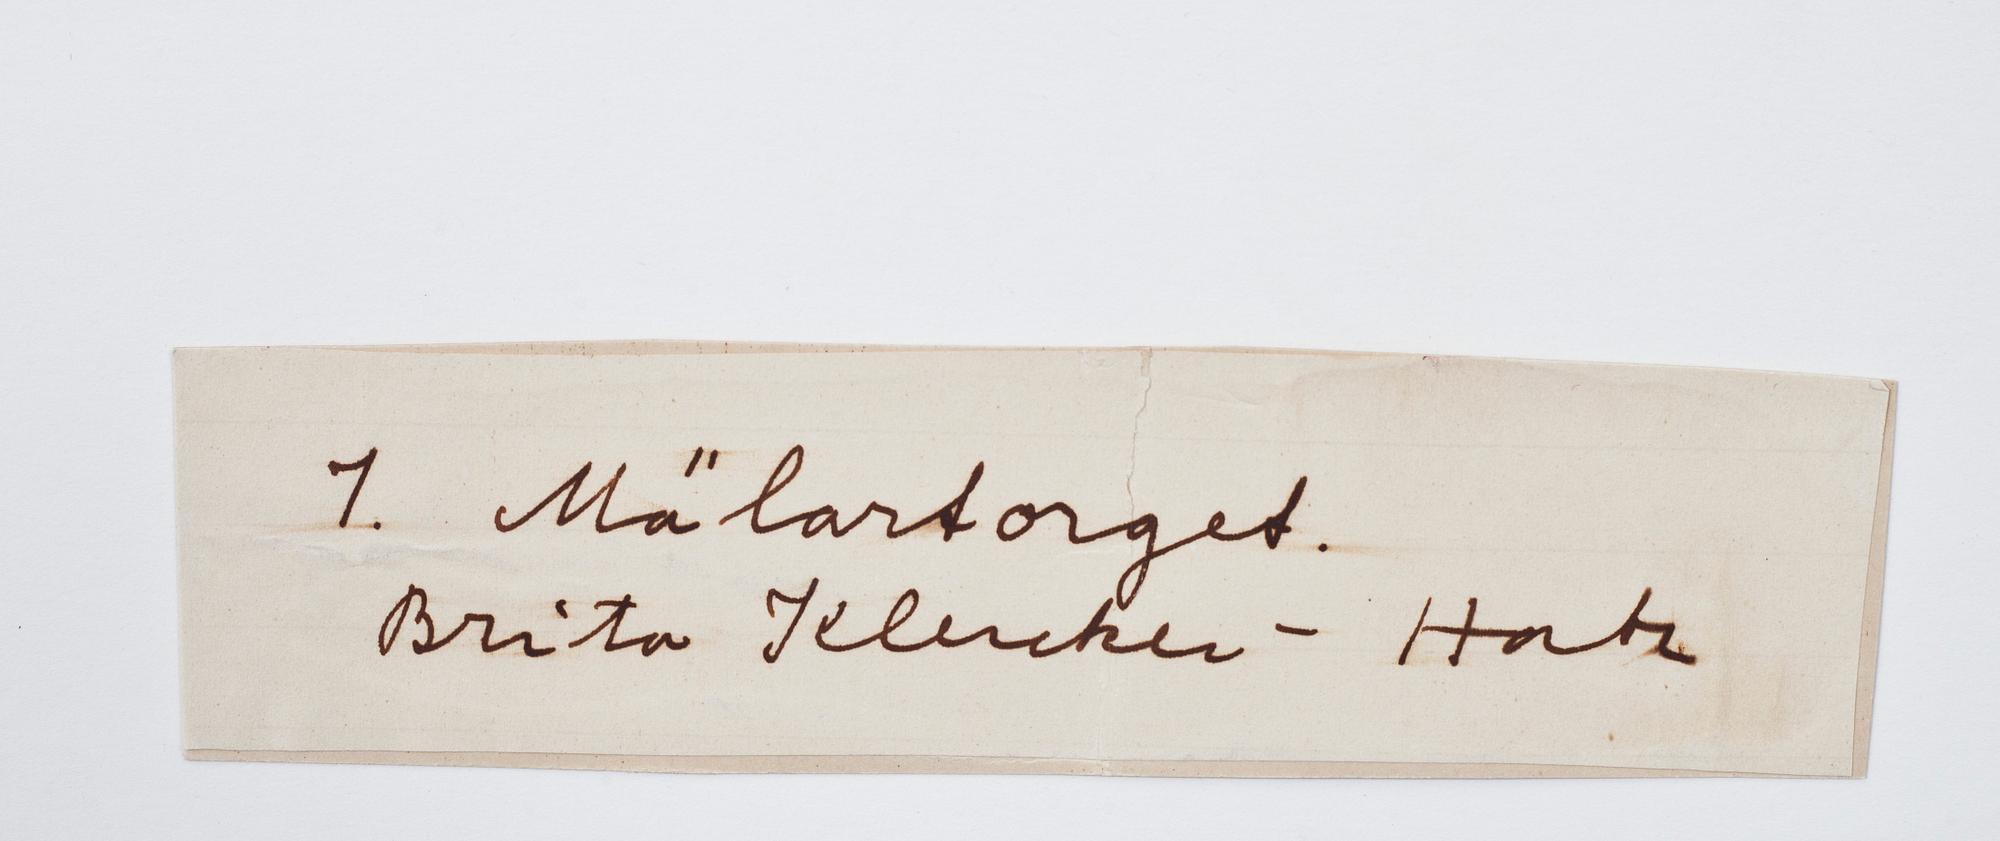 7. Mälartorget.
Brita Klercker - Hartz